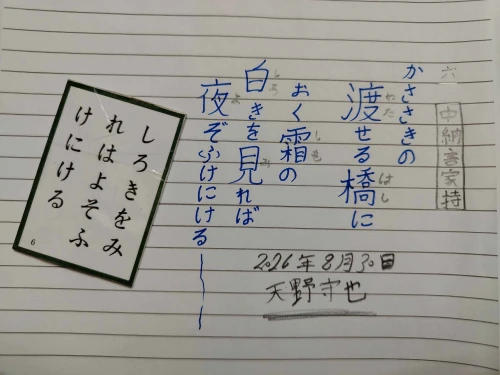 六
中納言家持
かささぎの
渡せる橋に
わた
はし
おく霜の
しも
白きを見れば
しろ
み
夜ぞふけにける
よ
2026年8月30日
天野守也
しろきをみ
れはよそふ
けにける
6